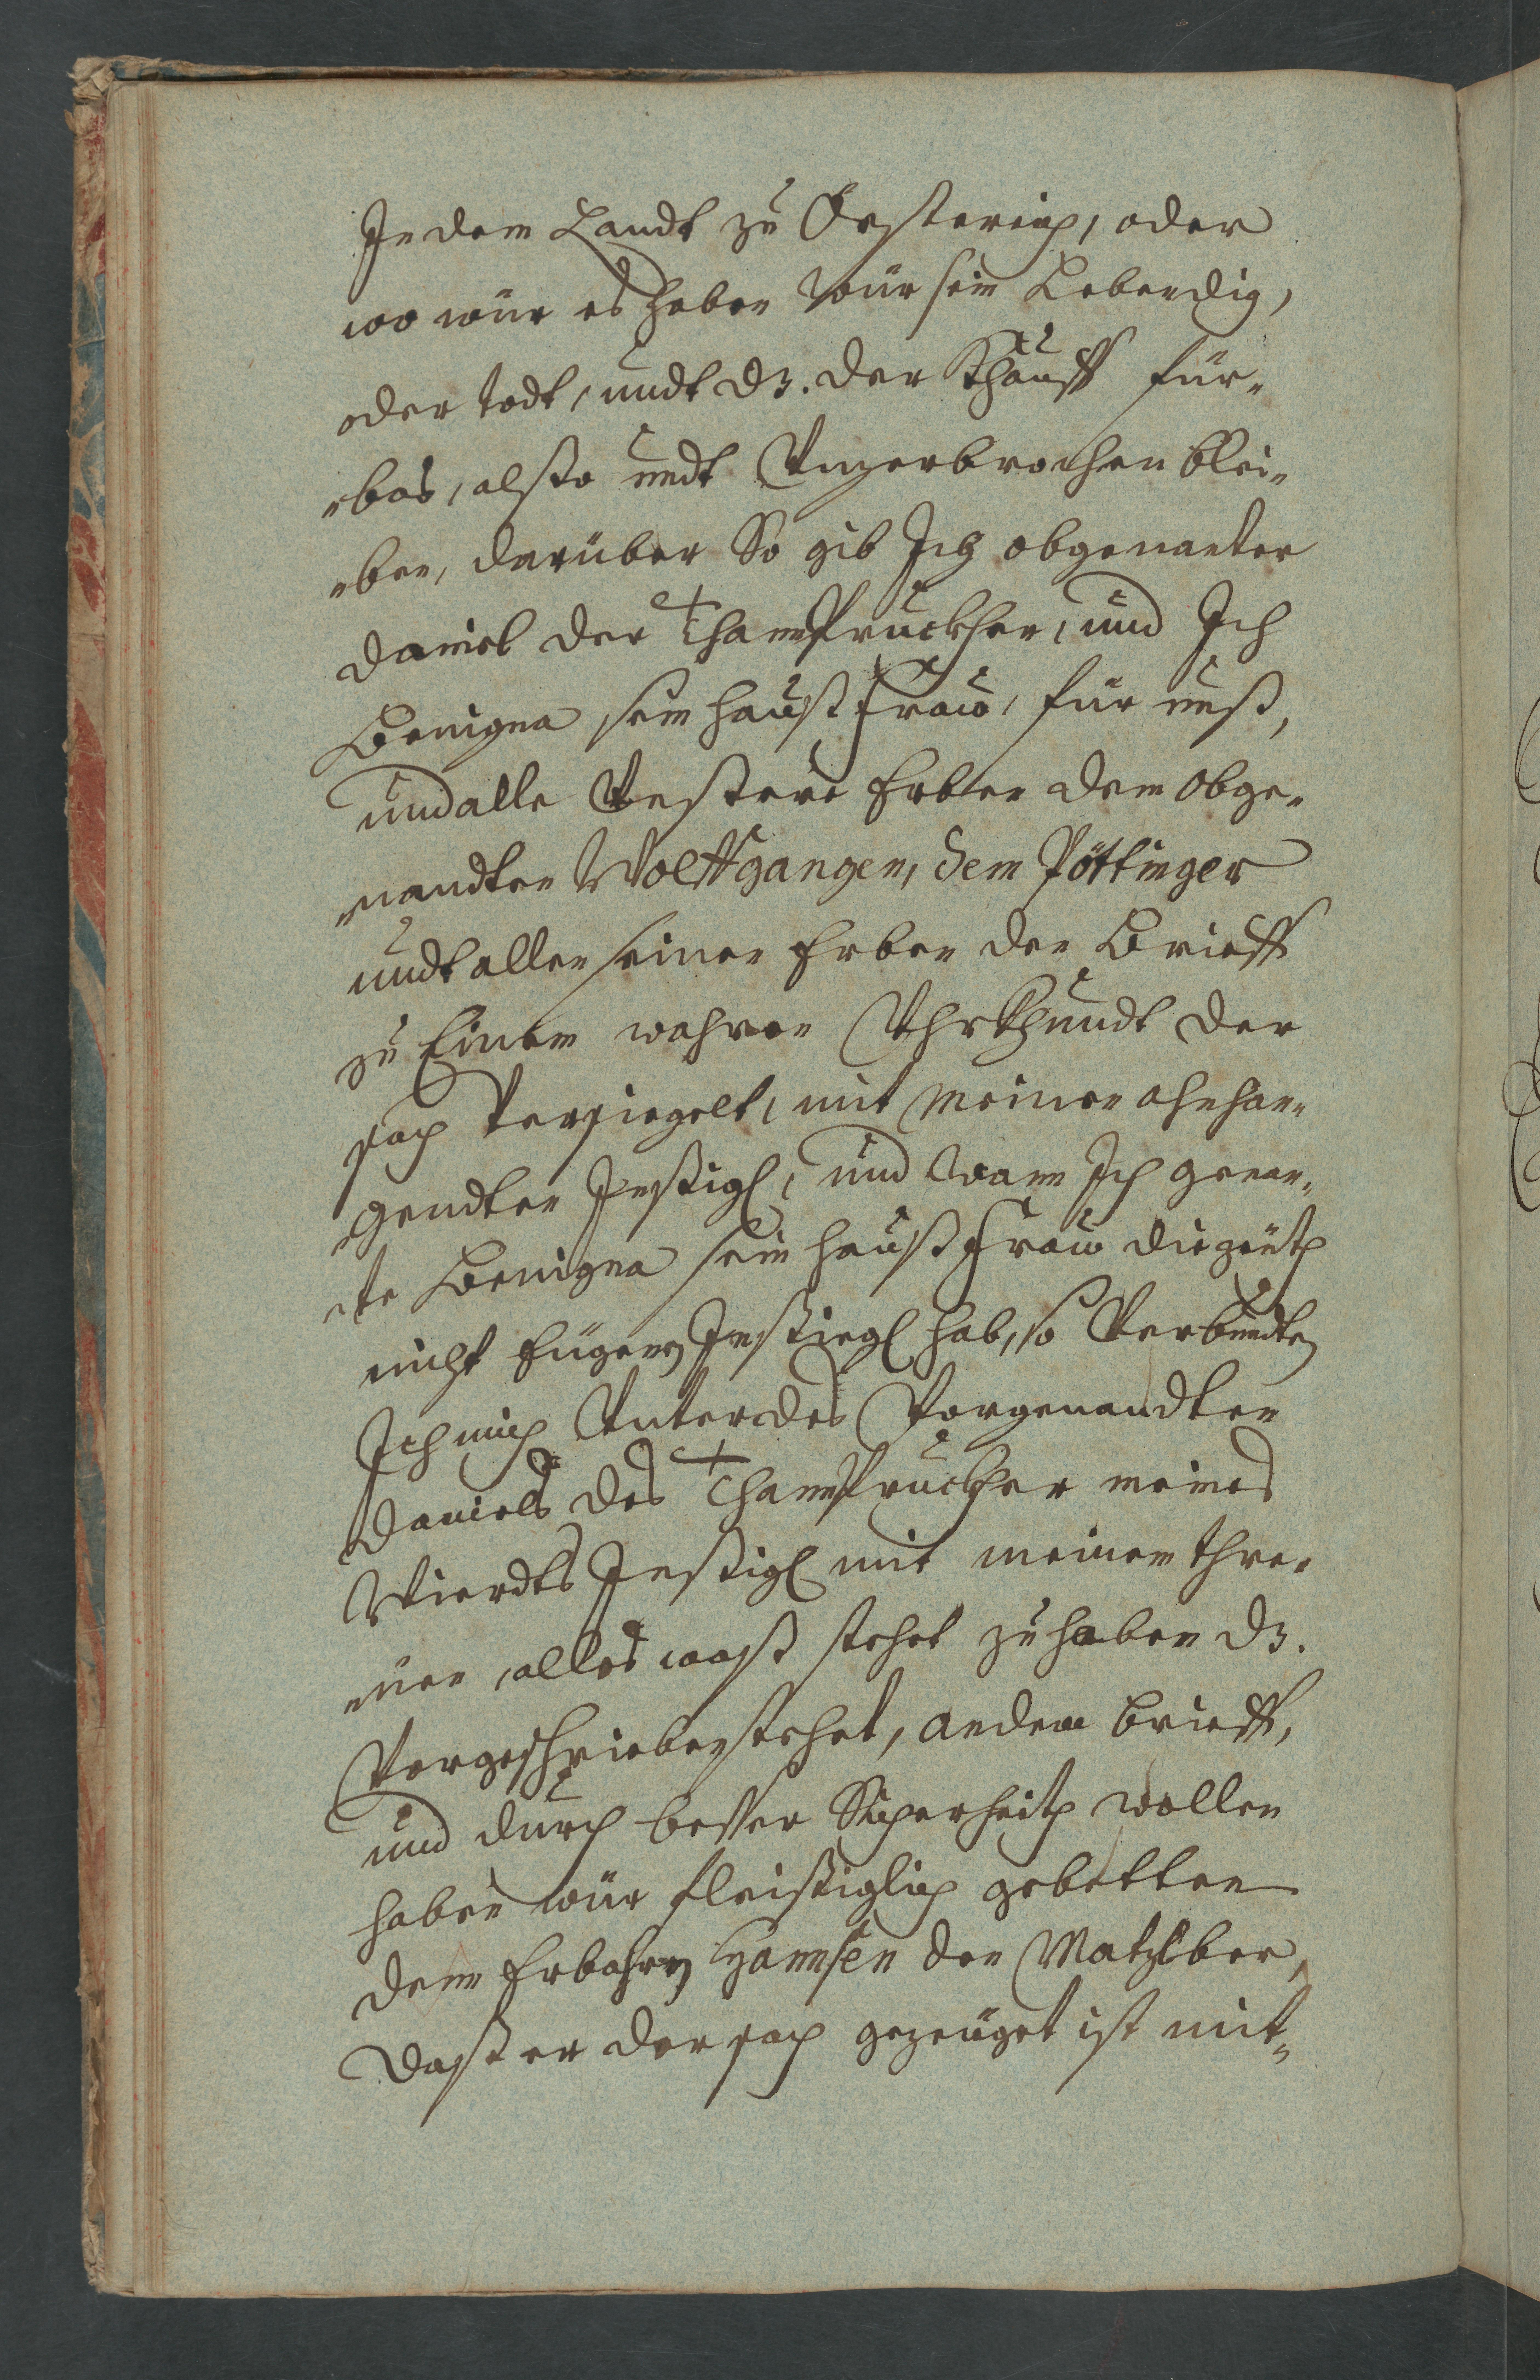 In dem Landt zu Össterich, oder
wo wür es haben wür sein Lebendig,
oder todt, undt dz. der Khauff für„
„bas, alßo undt Unzerbrochen blei„
„ben, darüber So gib Ich obgenanter
Daniel der Thannpruckher, und Ich
Benigna sein haußfraw, für unß,
und alle Unßere Erben dem obge„
„nandten Wolffgangen, dem Pöttinger
undt allen seinen Erben den Brieff
zu Einem wahren Uhrkhundt der
sach Versiegelt, mit meinen anhan„
„gendten Insigl, und Wann Ich genan„
„te Benigna sein haußfraw die zeith
nicht Eügen Insiegl hab, so Verbündte
Ich mich Unter des Vorgenandten
Daniels des Thannprucker meines
Wierdts Insigl mit meinen thre„
„uen, alles waß stehet zu haben dz.
Vorgeschrieben stehet, an dem Brieff,
und durch besser Sicherheith wollen
haben wür fleissiglich gebetten
den Erbahrn Hannsen den Matzlber,
Daß er der sach gezeüget ist mit„